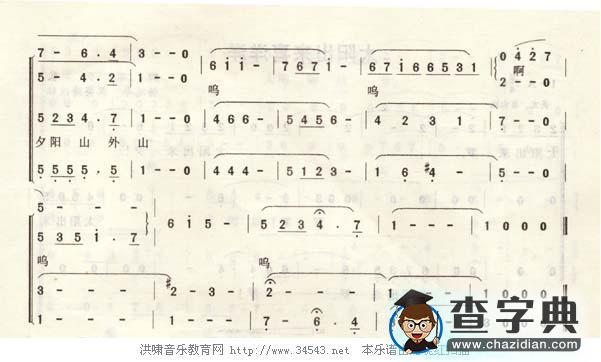 7 - 6 . 4 3 - - 0 6 i i - 7 6 7 i - 6 7 i 6 6 5 3 1 0 4 2 7
5 - 4 2 1 - - 0 啊 2 - - 0
呜 呜
5 2 3 4 . 7 1 - - 0 4 6 6 - 5 4 5 6 - 4 2 3 1 7 - - 0
夕阳 山 外 山
5 5 5 5 . 5 1 - - 0 4 4 4 - 5 1 2 3 - 1 6 #4 - 5 - - 0
5 - - - 5 - -
5 3 5 i . 7 6 i 5 - 5 2 3 4 . 7 1 - - - 1 0 0 0
呜 呜
3 - - - #2 - 2 3 - 2 - - - 1 - - - 1 0 0 0
1 - - - 1 - - - 7 - 6 . 1 - - - 1 0 0 0
查字典
www.chazidian.com
洪啸音乐教育网 http://www.34543.net